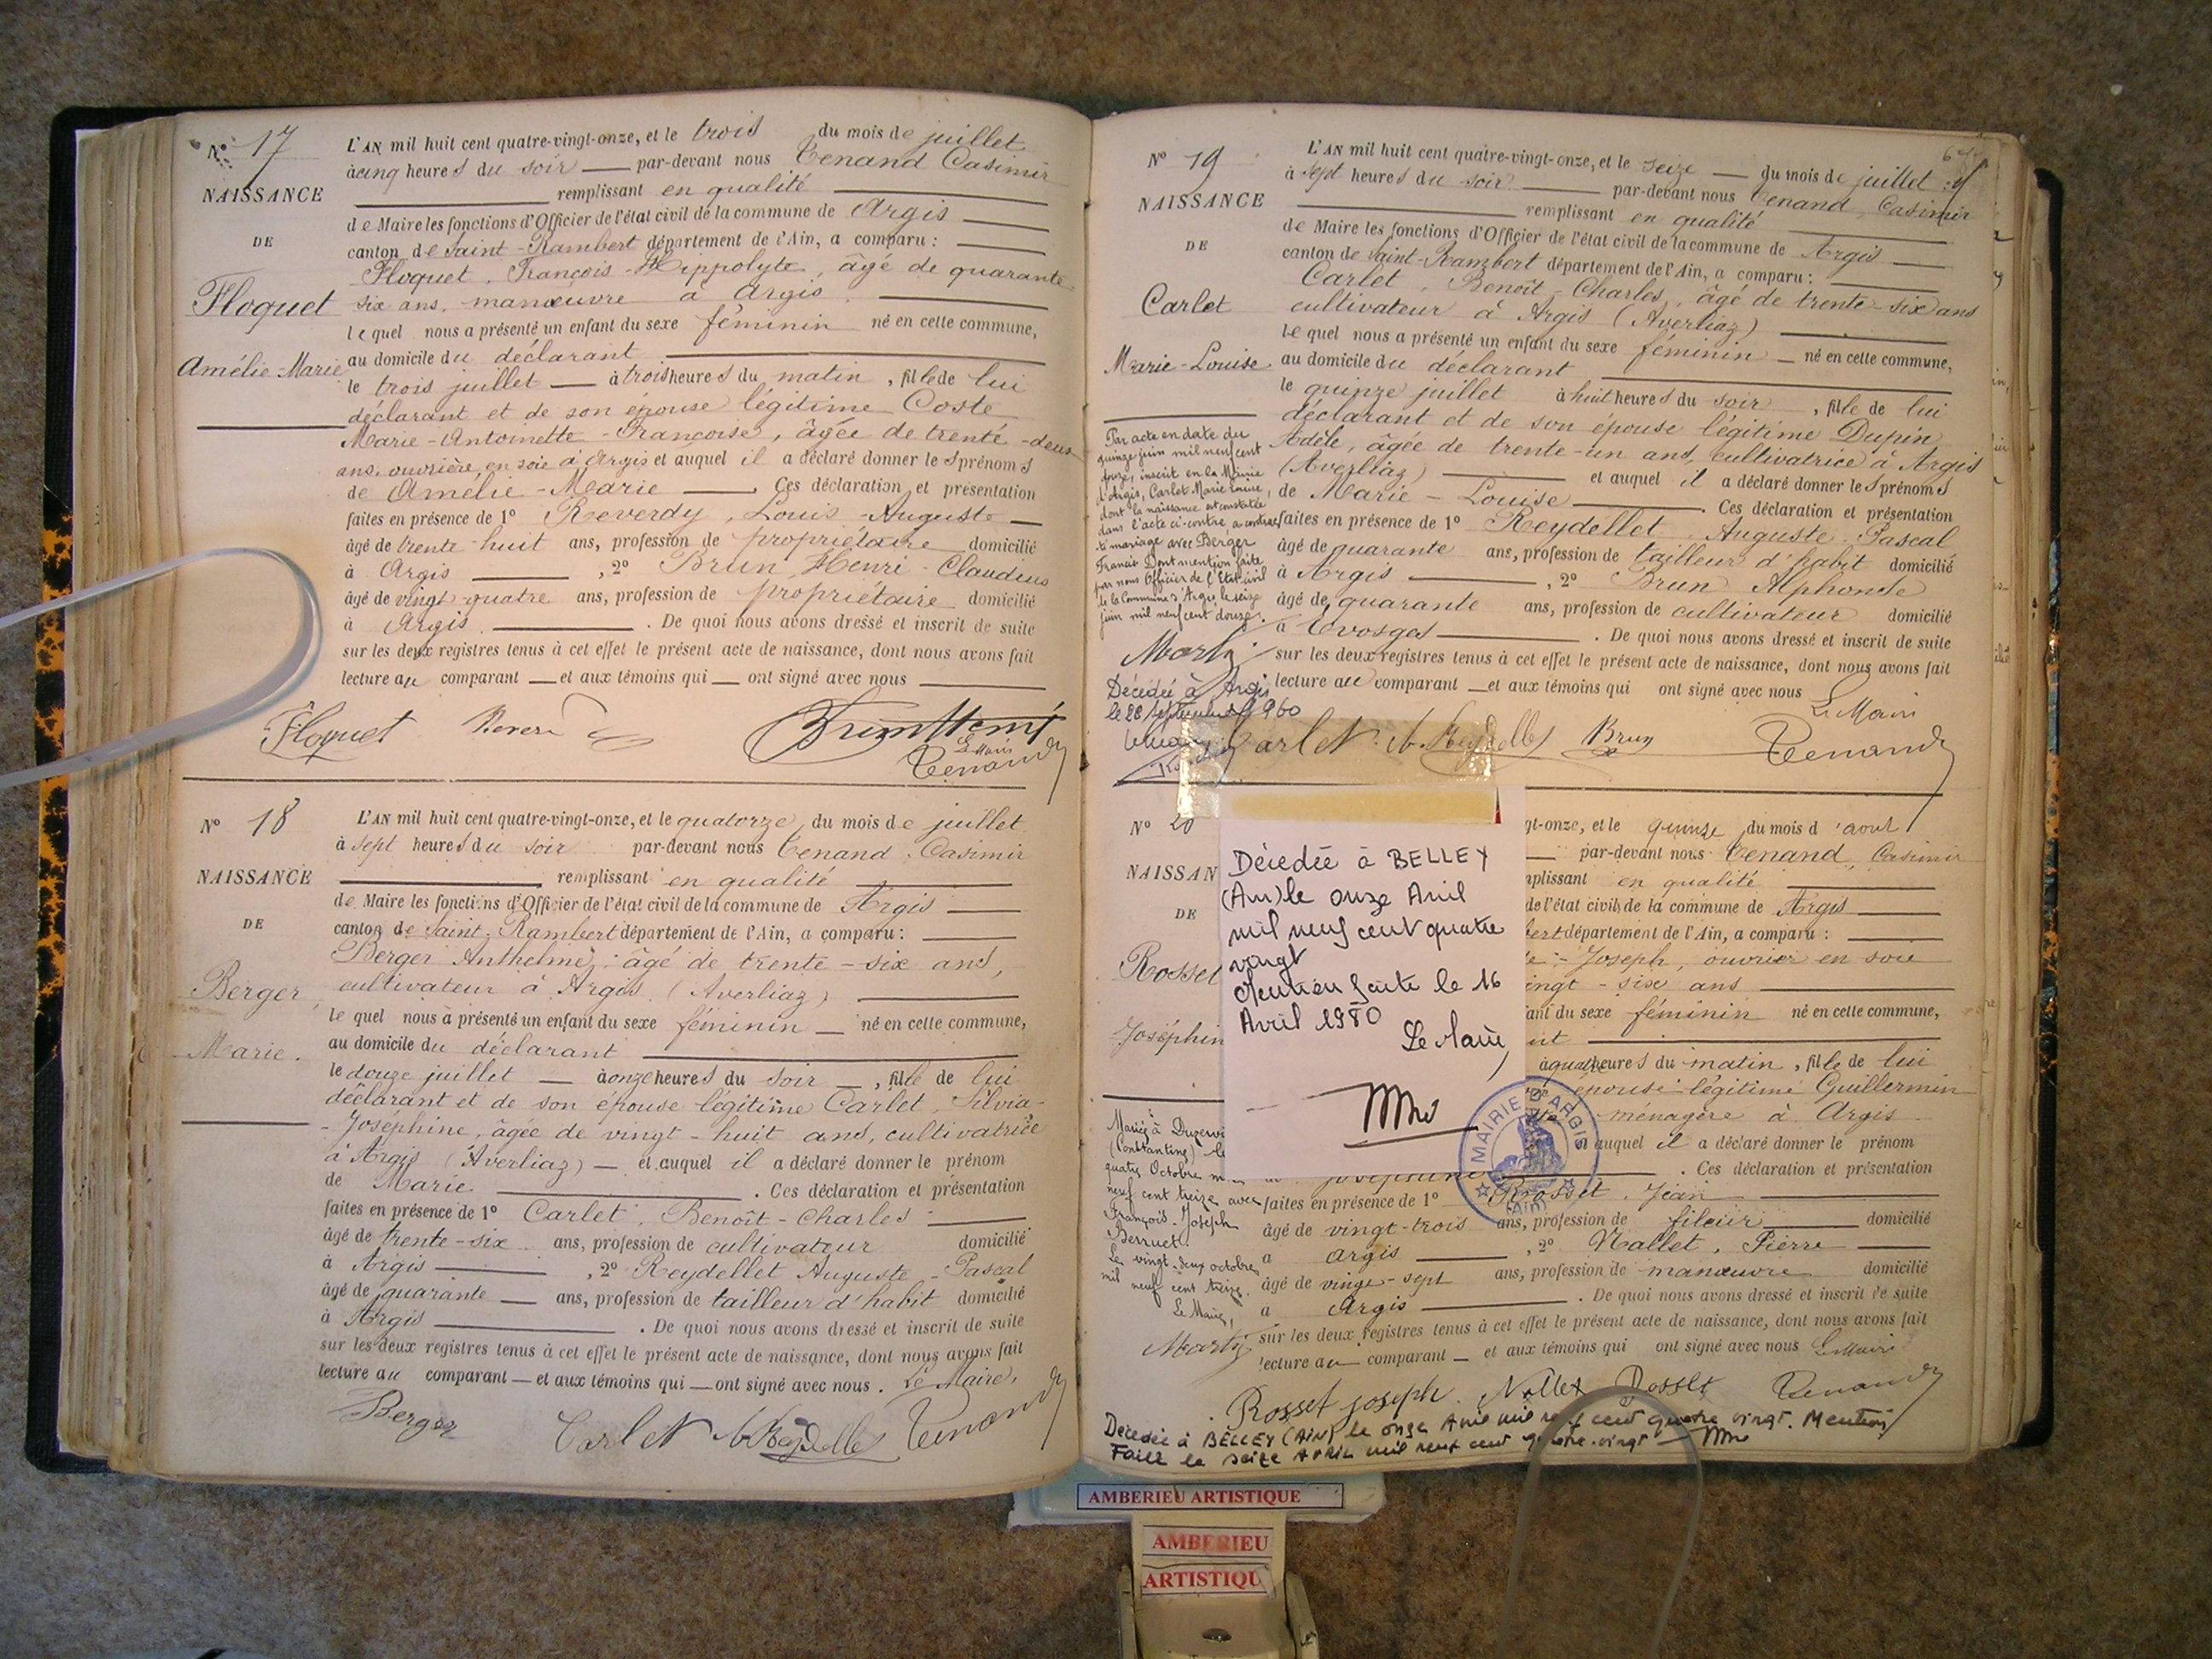 N° 17
NAISSANCE
DE
Floquet
Amélie-Marie
L'AN mil huit cent quatre-vingt-onze, et le trois du mois de juillet
à cinq heures du soir — par-devant nous Tenand Casimir
remplissant en qualité
de Maire les fonctions d'Officier de l'état civil de la commune de Argis
canton de Saint-Rambert département de l'Ain, a comparu :
Floquet, François-Hippolyte, âgé de quarante
six ans, manœuvre à Argis.
lequel nous a présenté un enfant du sexe féminin né en cette commune,
au domicile du déclarant
le trois juillet — à trois heures du matin, fille de lui
déclarant et de son épouse légitime Coste
Marie-Antoinette-Françoise, âgée de trente-deux
ans, ouvrière en soie à Argis et auquel il a déclaré donner les prénoms
de Amélie-Marie — Ces déclaration et présentation
faites en présence de 1° Reverdy, Louis-Auguste —
âgé de trente-huit ans, profession de propriétaire domicilié
à Argis — , 2° Brun, Henri-Claudius
âgé de vingt-quatre ans, profession de propriétaire domicilié
à Argis — . De quoi nous avons dressé et inscrit de suite
sur les deux registres tenus à cet effet le présent acte de naissance, dont nous avons fait
lecture au comparant — et aux témoins qui — ont signé avec nous
Floquet Brun Henri
Le Maire
Tenand
N° 18
NAISSANCE
DE
Berger
Marie.
L'AN mil huit cent quatre-vingt-onze, et le quatorze du mois de juillet
à sept heures du soir par-devant nous Tenand, Casimir
remplissant en qualité
de Maire les fonctions d'Officier de l'état civil de la commune de Argis —
canton de Saint-Rambert département de l'Ain, a comparu :
Berger Anthelme, âgé de trente-six ans,
cultivateur à Argis (Averliaz)
lequel nous a présenté un enfant du sexe féminin — né en cette commune,
au domicile du déclarant
le douze juillet — à onze heures du soir — , fille de lui
déclarant et de son épouse légitime Carlet, Silvia-
-Joséphine, âgée de vingt-huit ans, cultivatrice
à Argis (Averliaz) — et auquel il a déclaré donner le prénom
de Marie. — . Ces déclaration et présentation
faites en présence de 1° Carlet, Benoît-Charles
âgé de trente-six ans, profession de cultivateur domicilié
à Argis — , 2° Reydellet Auguste-Pascal
âgé de quarante — ans, profession de tailleur d'habit domicilié
à Argis — . De quoi nous avons dressé et inscrit de suite
sur les deux registres tenus à cet effet le présent acte de naissance, dont nous avons fait
lecture au comparant — et aux témoins qui — ont signé avec nous. Le Maire,
Berger Carlet A. Reydellet Tenand
N° 19
NAISSANCE
DE
Carlet
Marie-Louise
L'AN mil huit cent quatre-vingt-onze, et le seize — du mois de juillet
à sept heures du soir — par-devant nous Tenand, Casimir
remplissant en qualité
de Maire les fonctions d'Officier de l'état civil de la commune de Argis —
canton de Saint-Rambert département de l'Ain, a comparu :
Carlet, Benoît-Charles, âgé de trente-six ans
cultivateur à Argis (Averliaz)
lequel nous a présenté un enfant du sexe féminin — né en cette commune,
au domicile du déclarant
le quinze juillet à huit heures du soir , fille de lui
déclarant et de son épouse légitime Dupin
Adèle, âgée de trente-un ans, cultivatrice à Argis
(Averliaz) — et auquel il a déclaré donner les prénoms
de Marie-Louise — . Ces déclaration et présentation
faites en présence de 1° Reydellet, Auguste-Pascal
âgé de quarante ans, profession de tailleur d'habit domicilié
à Argis — , 2° Brun Alphonse
âgé de quarante ans, profession de cultivateur domicilié
à Evosges — . De quoi nous avons dressé et inscrit de suite
sur les deux registres tenus à cet effet le présent acte de naissance, dont nous avons fait
lecture au comparant — et aux témoins qui ont signé avec nous Le Maire
Carlet A. Reydellet Brun Tenand
Par acte en date du
quinze juin mil neuf cent
douze, inscrit en la Mairie
d'Argis, Carlet Marie Louise,
dont la naissance est constatée
dans l'acte ci-contre a contrac
té mariage avec Berger
Francis Dont mention faite
par nous Officier de l'Etat civil
de la Commune d'Argis le seize
juin mil neuf cent douze.
Décédée à Argis
le 28 septembre 1960
N° 20
NAISSAN
DE
Rosset
Joséphin
gt-onze, et le quinze du mois d'août
— par-devant nous Tenand, Casimir
mplissant en qualité
de l'état civil de la commune de Argis
bert département de l'Ain, a comparu :
Joseph, ouvrier en soie
ingt-six ans
ant du sexe féminin né en cette commune,
à quatre heures du matin, fille de lui
épouse légitime Guillermin
ménagère à Argis
auquel il a déclaré donner le prénom
Joséphine — . Ces déclaration et présentation
faites en présence de 1° Rosset, Jean
âgé de vingt-trois ans, profession de fileur domicilié
à Argis — , 2° Nallet, Pierre
âgé de vingt-sept ans, profession de manœuvre domicilié
à Argis — . De quoi nous avons dressé et inscrit de suite
sur les deux registres tenus à cet effet le présent acte de naissance, dont nous avons fait
lecture au comparant — et aux témoins qui ont signé avec nous Le Maire
Rosset Joseph Nallet Rosset Tenand
Décédée à BELLEY (AIN) le onze Avril mil neuf cent quatre vingt. Mention
Faite le seize AVRIL mil neuf cent quatre-vingt
Mariée à
(Constantine) le
quatre Octobre m
neuf cent treize avec
François-Joseph
Perruet.
Le vingt-deux octobre
mil neuf cent treize.
Le Maire,
Décédée à BELLEY
(Ain) le onze Avril
mil neuf cent quatre
vingt
Mention faite le 16
Avril 1980
Le Maire,
MAIRIE D'ARGIS
(Ain)
AMBERIEU ARTISTIQUE
AMBERIEU
ARTISTIQU